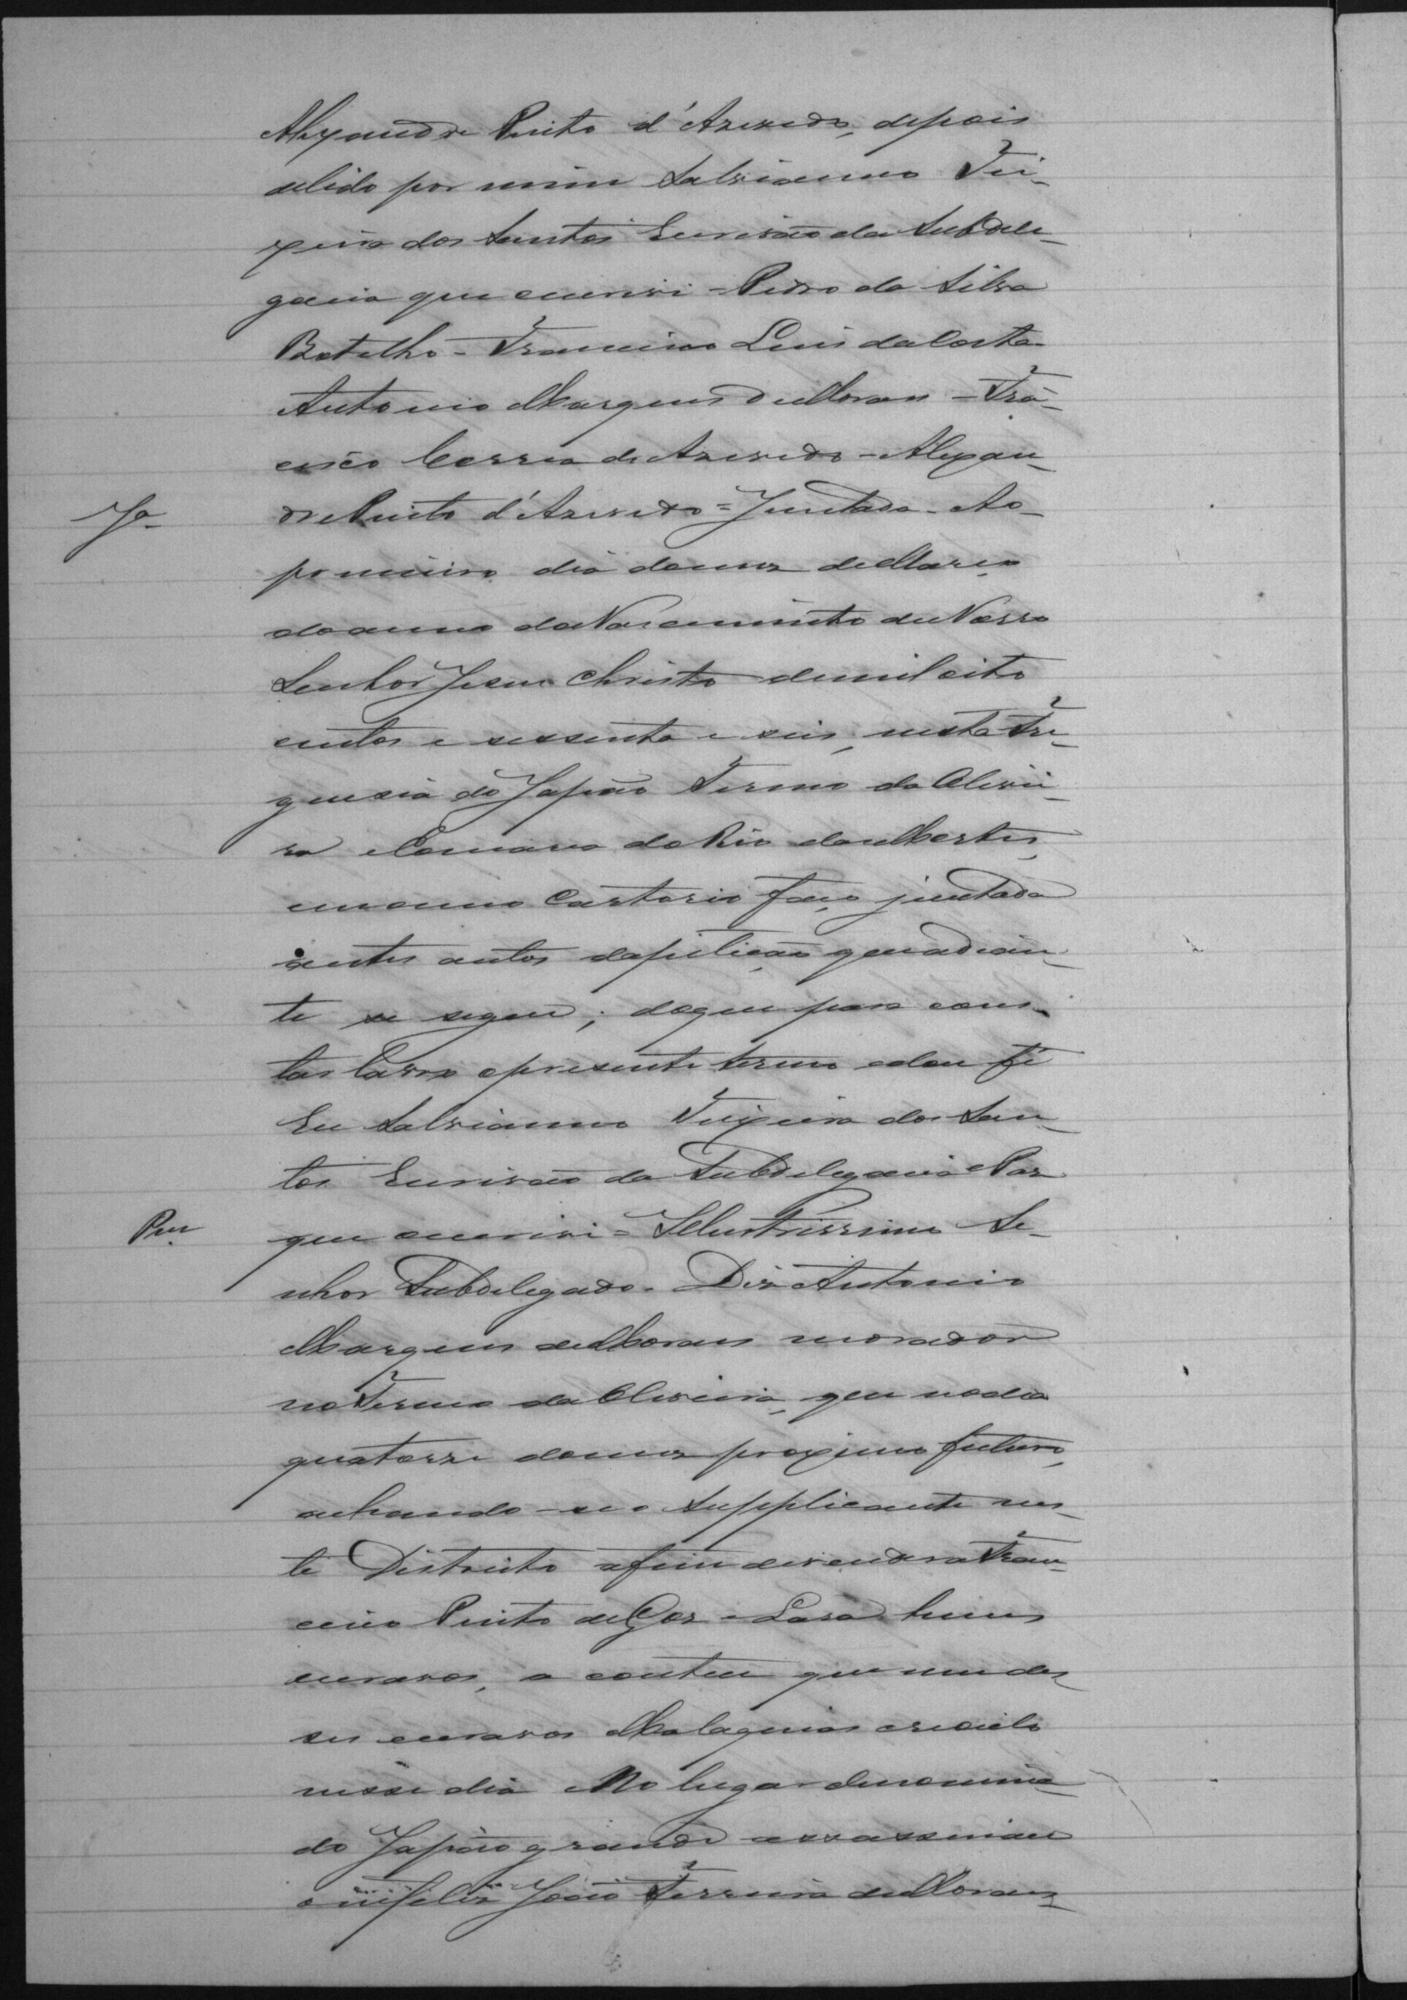 Alexandre Pinto d'Azevedo, depois
de lido por mim Salvianno Tei-
xeira dos Santos Escrivão da Subdele-
gacia que escrevi - Pedro da Silva
Botelho - Francisco Luis da Costa
Antonio Marques de Moraes - Frã-
cisco Correa de Azevedo - Alexan-
Ja dre Pinto d'Azevedo = Juntada - Ao
primeiro dia do mez de Março
do anno do Nascimento de Nosso
Senhor Jesus Christo de mil oito
centos e sessenta e seis, nesta Fre-
guesia do Japão Termo da Olivei-
ra Comarca do Rio das Mortes,
em meu Cartorio faço juntada
a estes autos da petição que adian-
te se segue; do que para cons-
tar lavro o presente termo e dou fé
Eu Salvianno Teixeira dos San-
tos Escrivão da Subdelegacia e Paz
Pam que escrevi = Illustrissimo Se-
nhor Subdelegado. Diz Antonio
Marques de Moraes morador
no Termo da Oliveira, que no dia
quatorze do mez proximo futuro,
achando-se o Supplicante nes-
te Districto afim de vender a Fran-
cisco Pinto de Goz e Lara huns
escravos, acontece que um des-
ses escravos Malaquias crioulo
nesse dia e No lugar denomina-
do Japão grande assassinou
o infeliz João Ferreira de Moraes